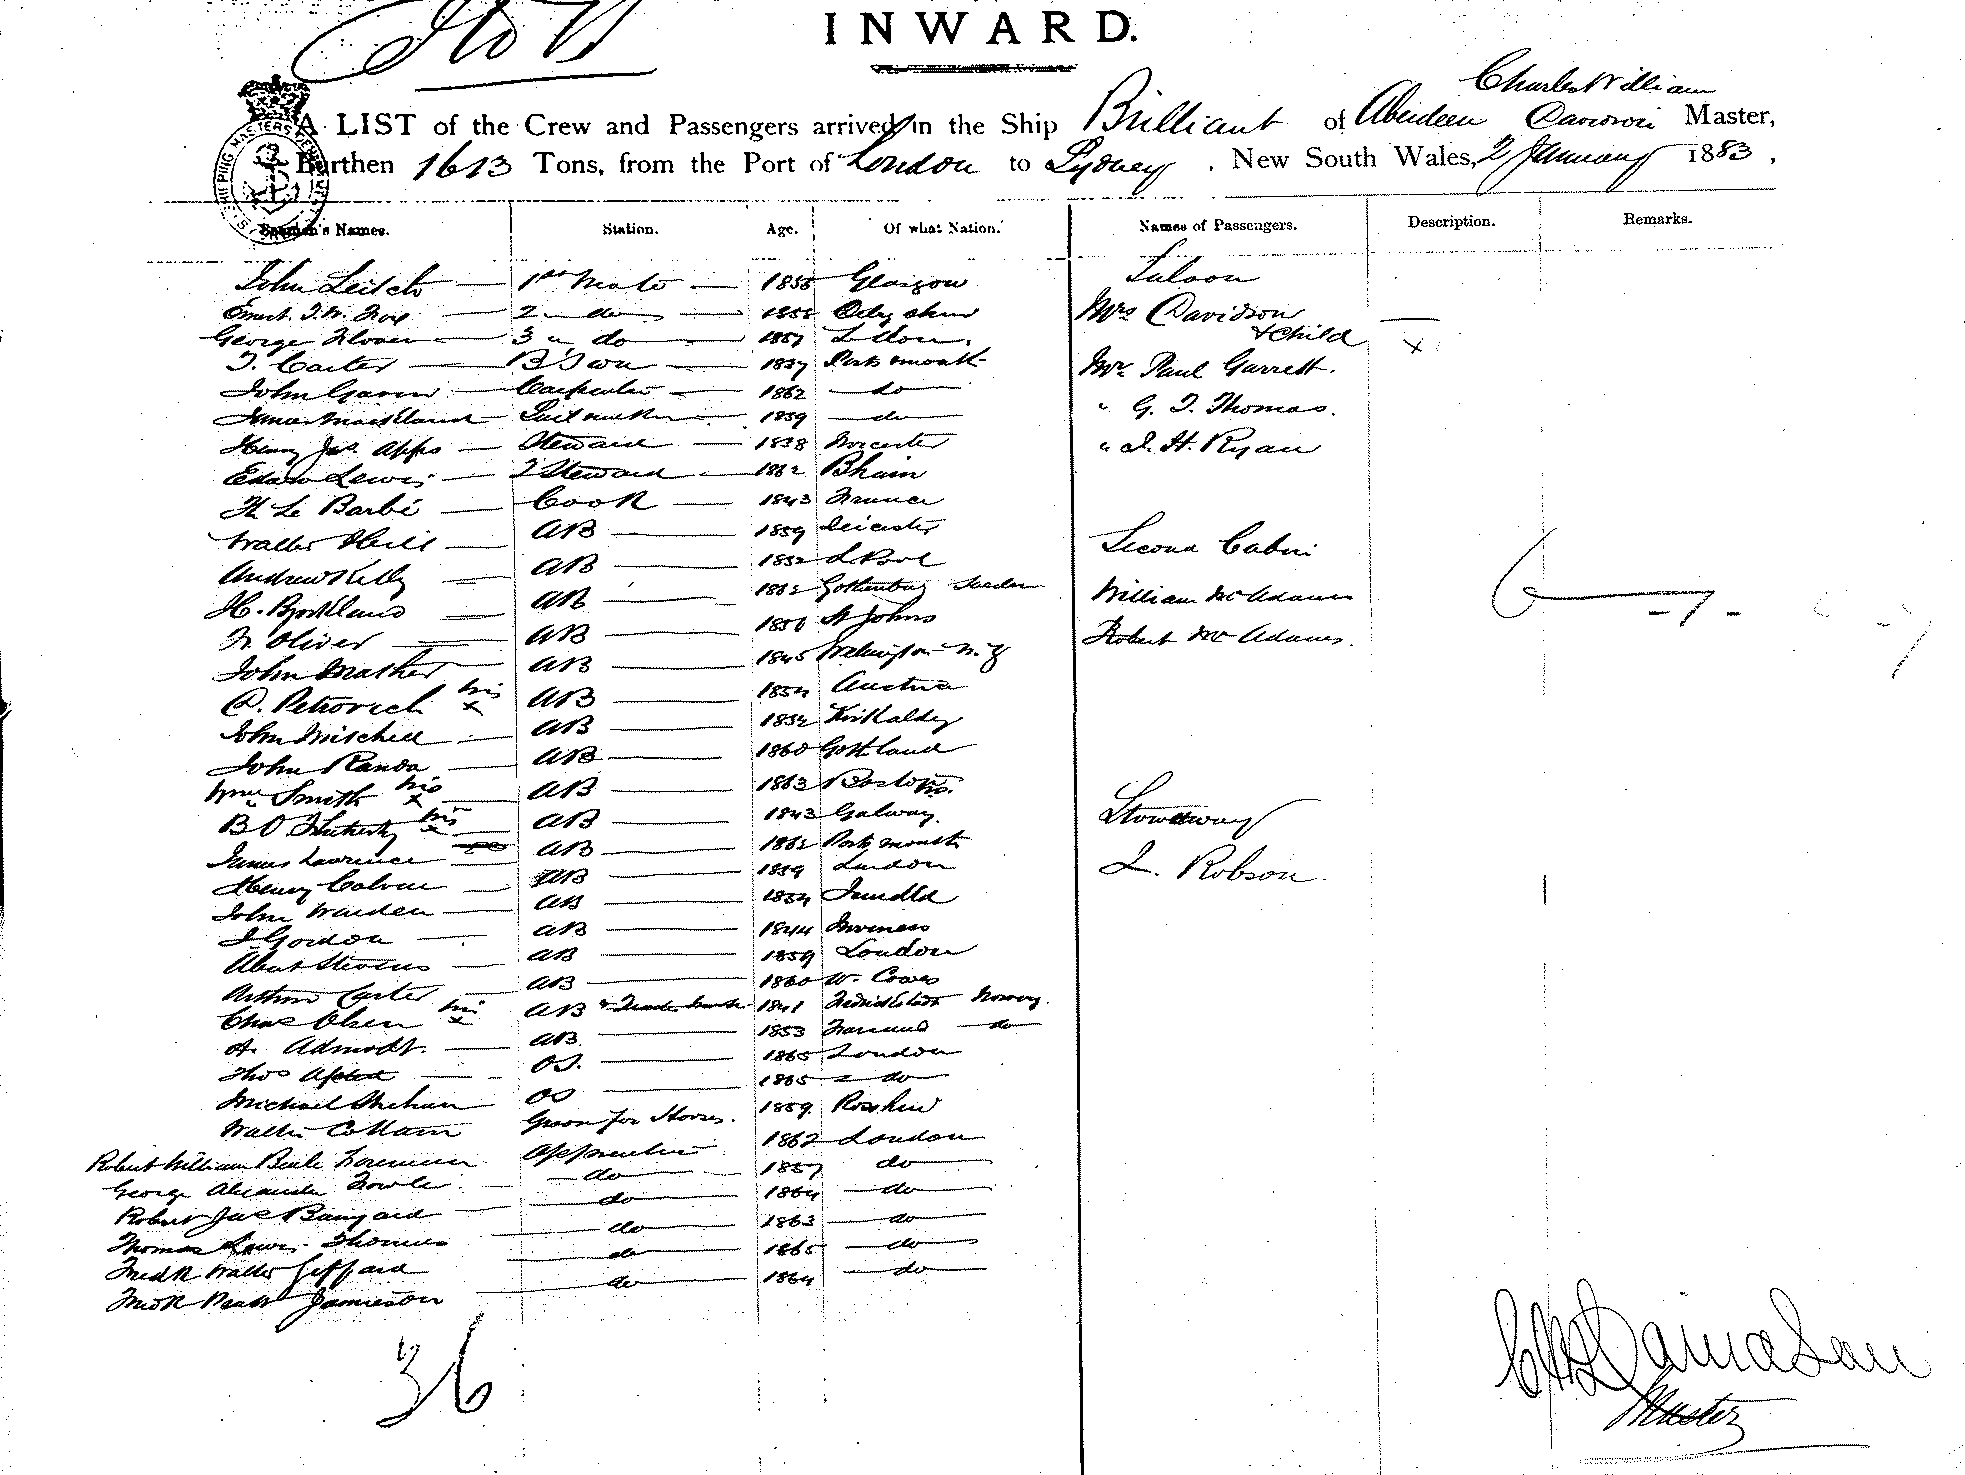 INWARD.
Charles William
A LIST of the Crew and Passengers arrived in the Ship Brilliant of Aberdeen Davidson Master,
Burthen 1613 Tons, from the Port of London to Sydney, New South Wales, 2 January 1883.
Seamen's Names. Station. Age. Of what Nation. Names of Passengers. Description. Remarks.
John Leitch 1st Mate 1855 Glasgow Saloon
2 do Mrs Davidson
George 3 do 1857 London + Child x
T. Carter B'Swn 1837 Portsmouth Mr Paul Garrett.
John Carpenter 1862 do
James Markland Sailmaker 1859 do " G. T. Thomas.
Henry Jas Apps Steward 1838 Worcester " J. H. Ryan
Edwd Lewis 2 Steward 1862 Bham
H Le Barbé Cook 1843 France
Walter Hill AB 1859 Leicester Second Cabin
Andrew Kelly AB 1852 L.Pool
H. Bjorkland AB 1862 Gothenburg Sweden William McAdams
W Oliver AB 1856 St Johns Robert McAdams.
John Mather AB 1845 Wellington N.Z
Petrovich his x AB 1854 Austria
John Mitchell AB 1832 Kirkaldy
John Randa AB 1860 Gottland
Wm Smith his x AB 1863 Boston
B O'Flaherty his x AB 1843 Galway. Stowaway
James Lawrence AB 1862 Portsmouth
Henry AB 1859 London J. Robson.
John Warden AB 1854
J Gordon AB 1844 Inverness
Albert Stevens AB 1859 London
Arthur Carter AB 1860 W. Cowes
Chas Olsen his x AB 1841 Fredrikstadt Norway.
A. AB. 1853 do
Thos OS. 1865 London
Michael Shehan OS 1865 do
Walter Cottam Groom for Horses. 1859
Robert William Apprentice 1862 London
George Alexander Fowle do 1857 do
Robert Jas Bangard do 1864 do
Thomas Lewis Thomas do 1863 do
Fredk Walter Giffard do 1865 do
Fredk Jamieson do 1864 do
36
C W Davidson
Master